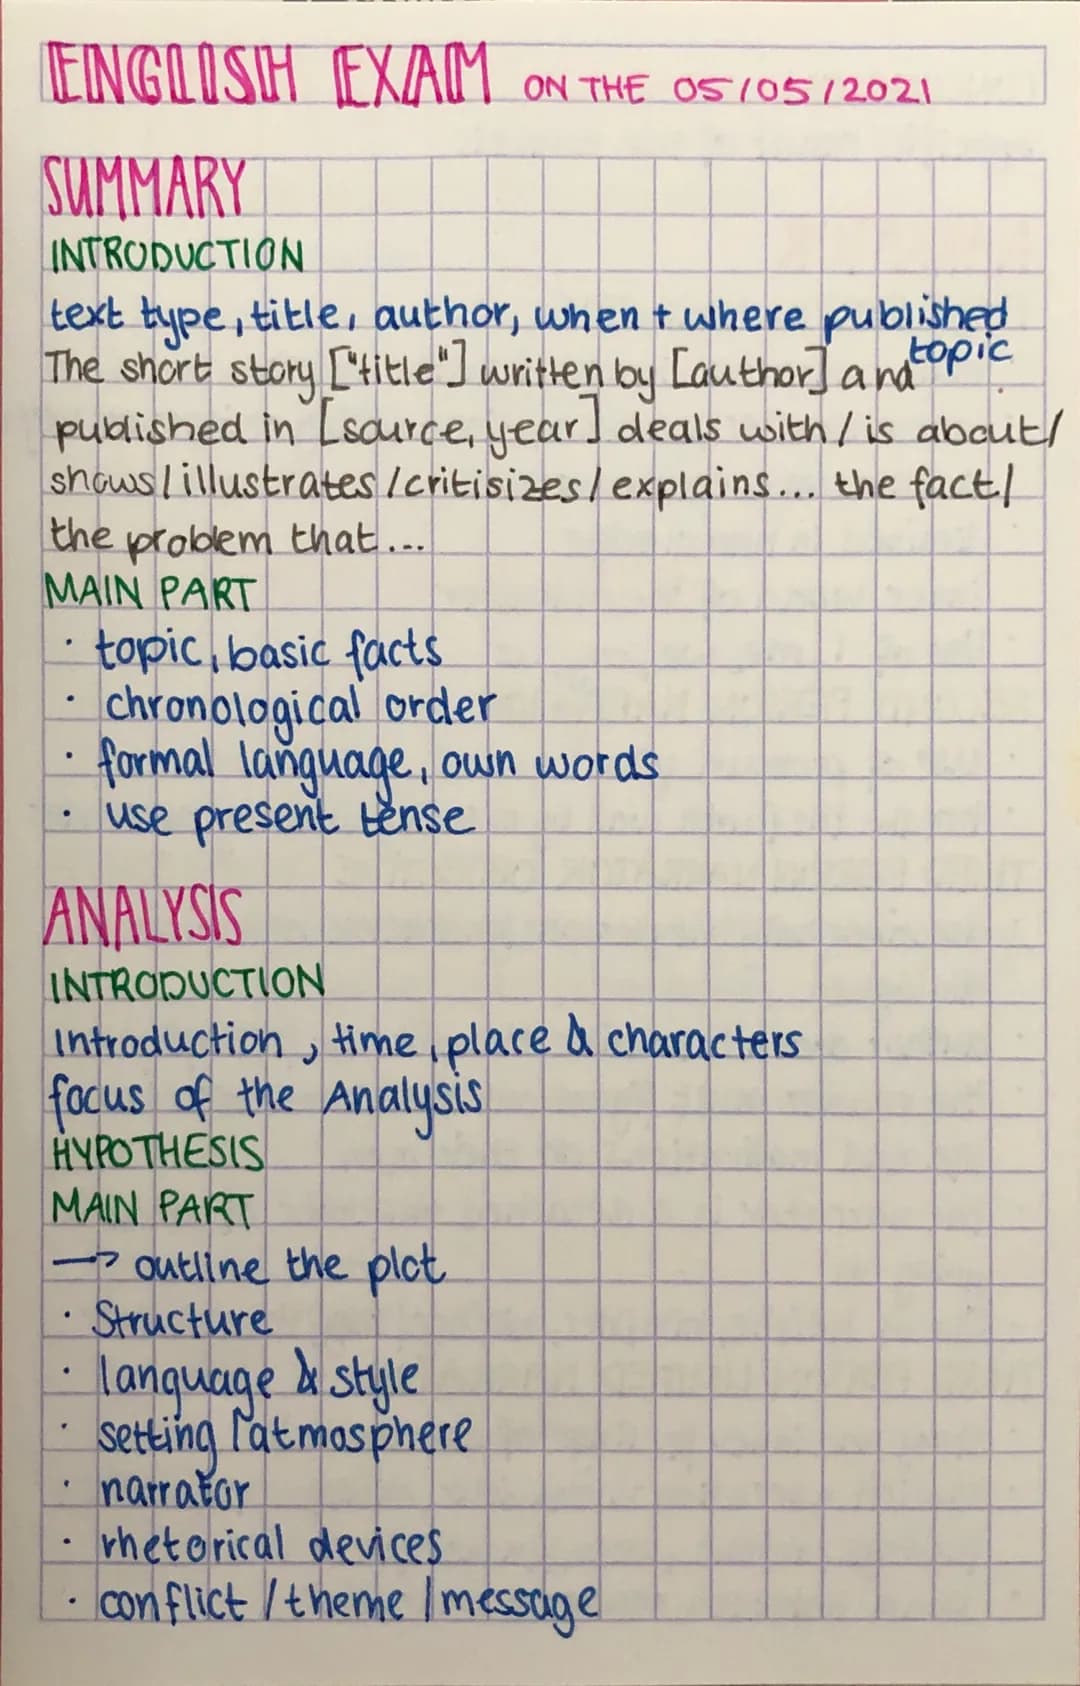 ENGLISH EXAM ON THE 05/05/2021
SUMMARY
INTRODUCTION
text type, title, author, when + where published
topic
The short story ["title"] written by [author] and
published in [source, year] deals with / is about /
shows / illustrates / critisizes / explains... the fact /
the problem that...
MAIN PART
· topic, basic facts
· chronological order
· formal language, own words
· use present tense
ANALYSIS
INTRODUCTION
Introduction, time, place & characters
focus of the Analysis
HYPOTHESIS
MAIN PART
→ outline the plot
· Structure
· language & style
· setting / atmosphere
· narrator
· rhetorical devices
· conflict / theme / message